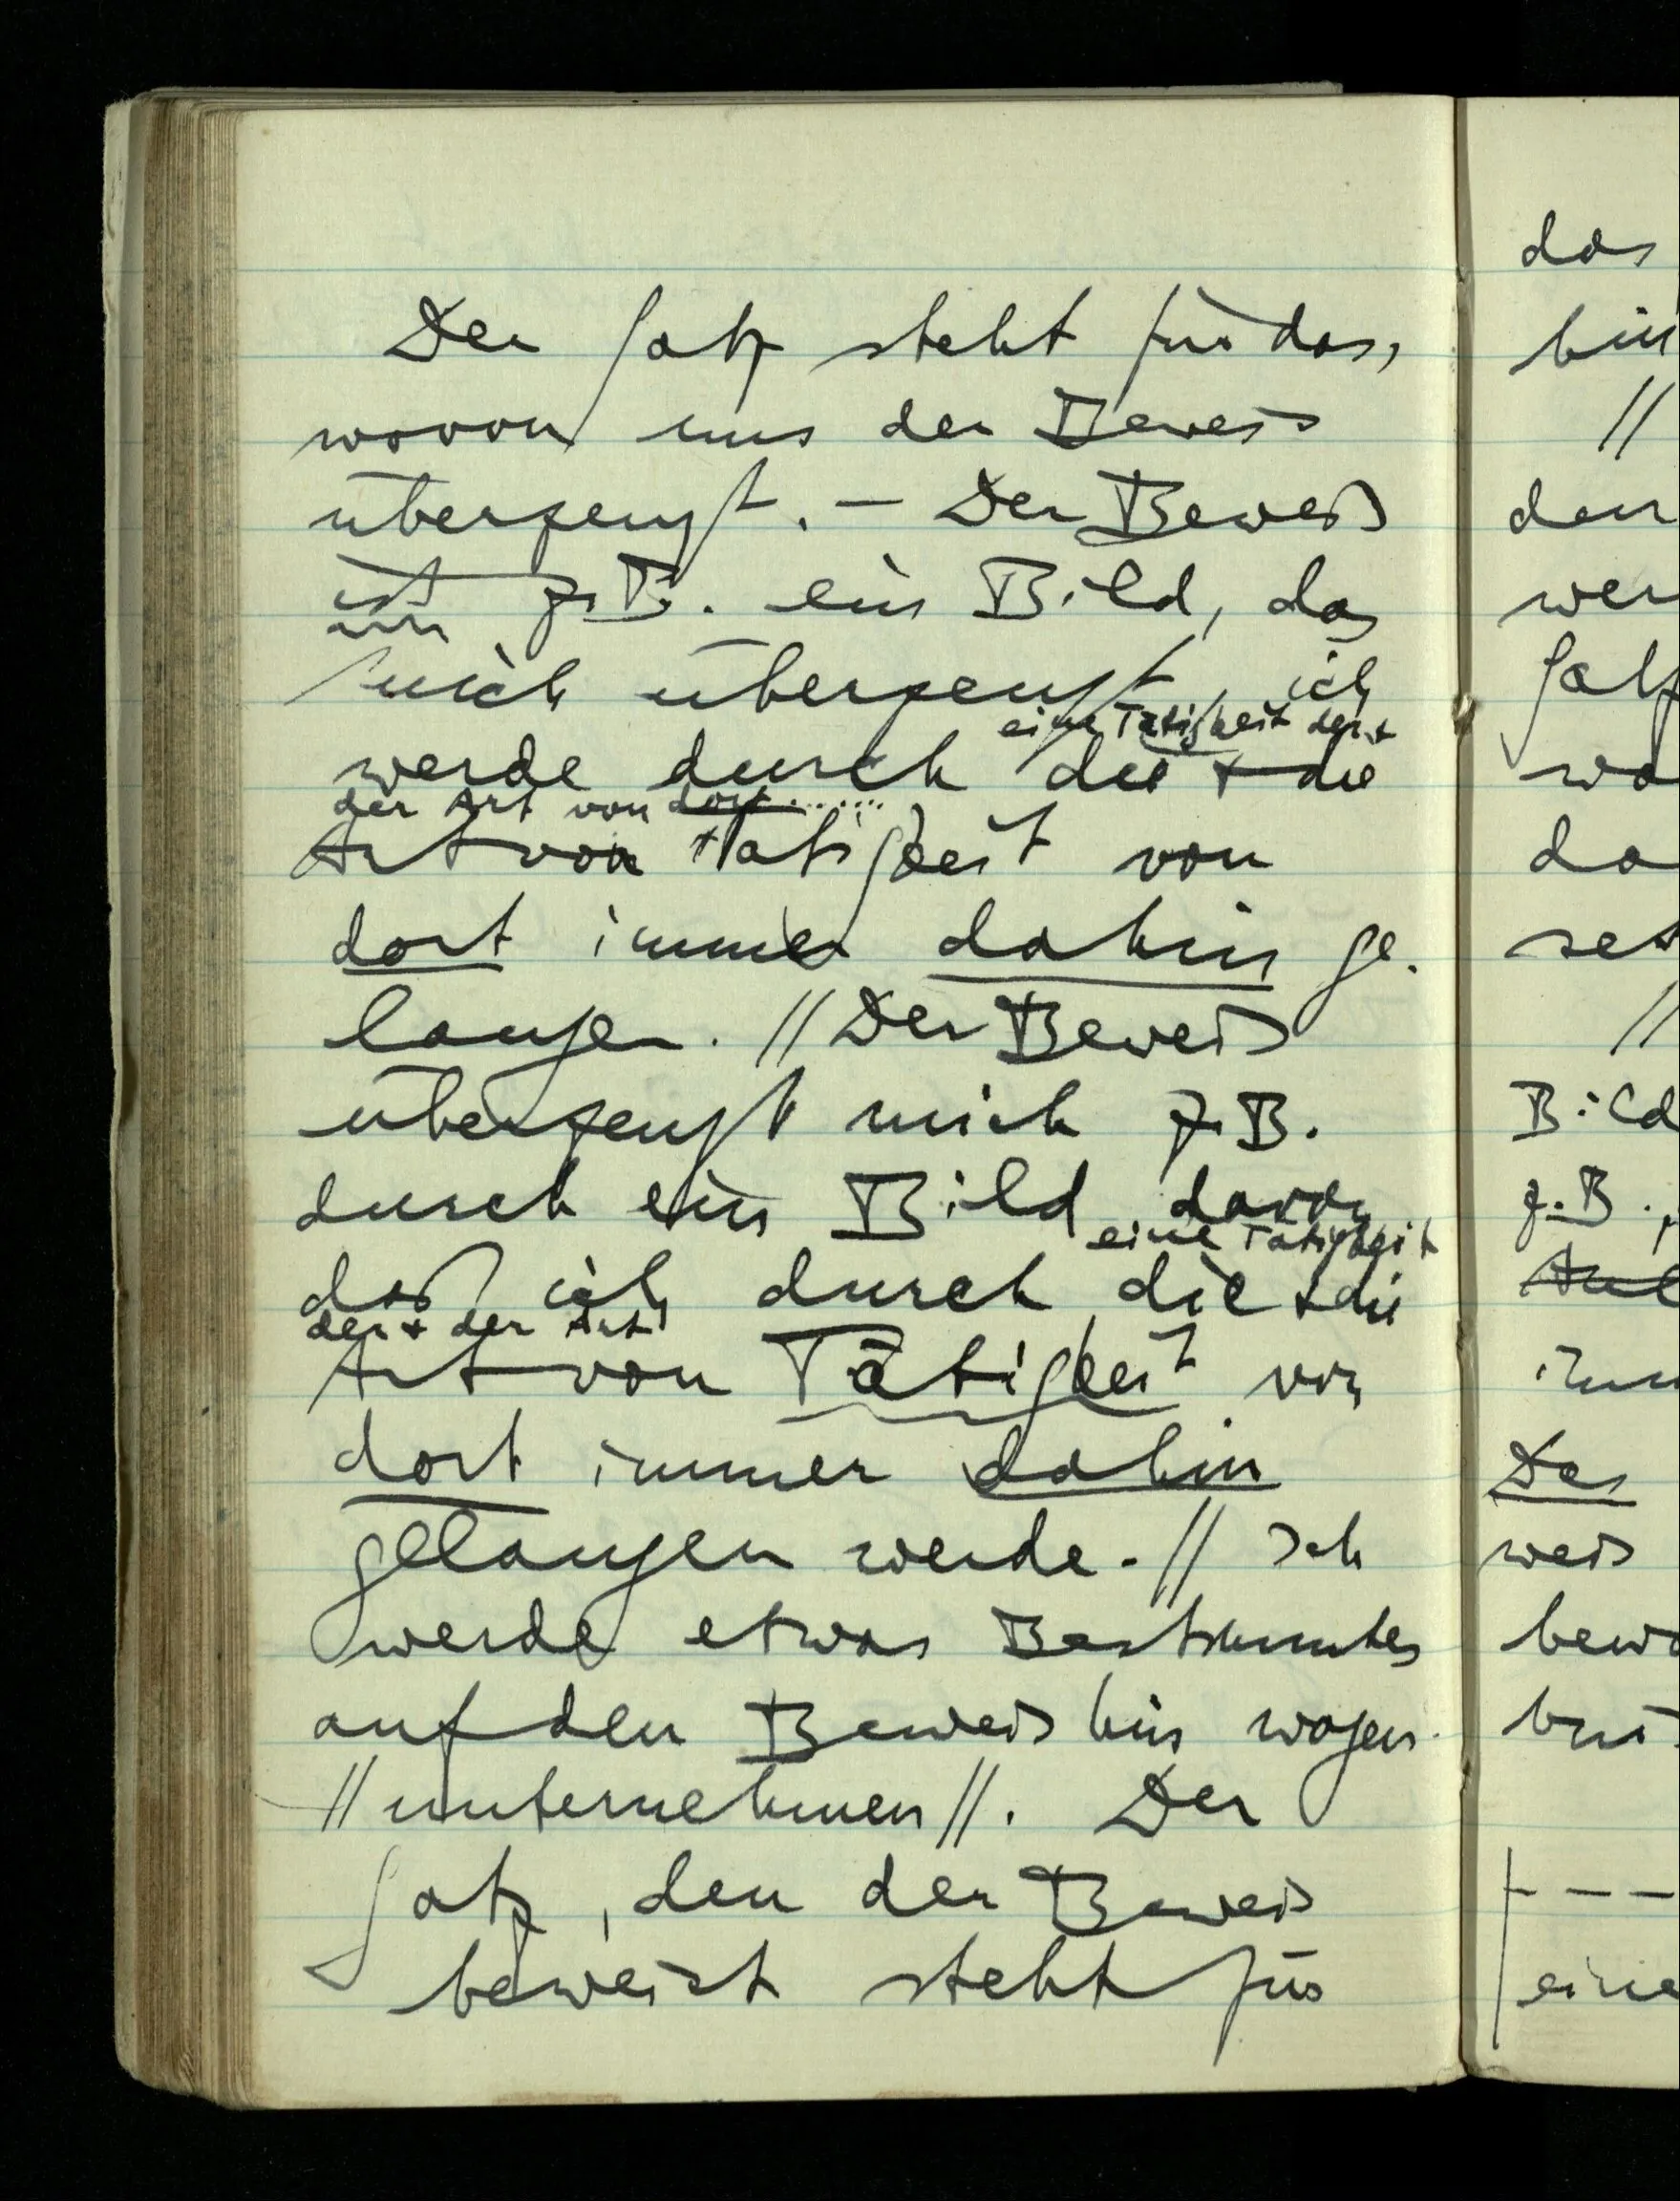 Der Satz steht für das,
wovon uns der Beweis
überzeugt. – Der Beweis
ist z.B. ein Bild, das
mich überzeugt, ich
eine Tätigkeit der +
werde durch die + die
der Art von dort ......
Art von Tätigkeit von
dort immer dahin ge-
langen. // Der Beweis
überzeugt mich z.B.
durch ein Bild davon
eine Tätigkeit
daß ich durch die + die
der + der Art
Art von Tätigkeit von
dort immer dahin
gelangen werde. // Ich
werde etwas Bestimmtes
auf den Beweis hin wagen
// unternehmen //. Der
Satz, den der Beweis
beweist steht für
das
bin
//
den
wer
Satz
wo
da
set
//
Bild
z.B.
Das
weis
bewe
– – –
eine